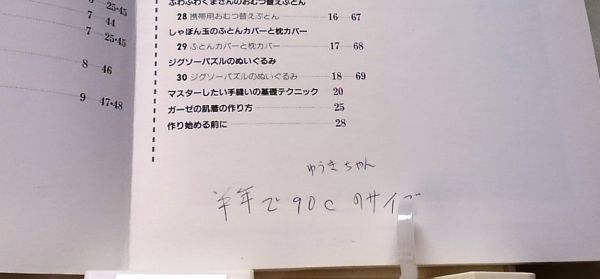 7 25・45
7 44
7 25・45
8 46
9 47・48
ふわふわくまさんのおむつ替えぶとん
28 携帯用おむつ替えぶとん 16 67
しゃぼん玉のふとんカバーと枕カバー
29 ふとんカバーと枕カバー 17 68
ジグソーパズルのぬいぐるみ
30 ジグソーパズルのぬいぐるみ 18 69
マスターしたい手縫いの基礎テクニック 20
ガーゼの肌着の作り方 25
作り始める前に 28
ゆうきちゃん
半年で90cのサイズ